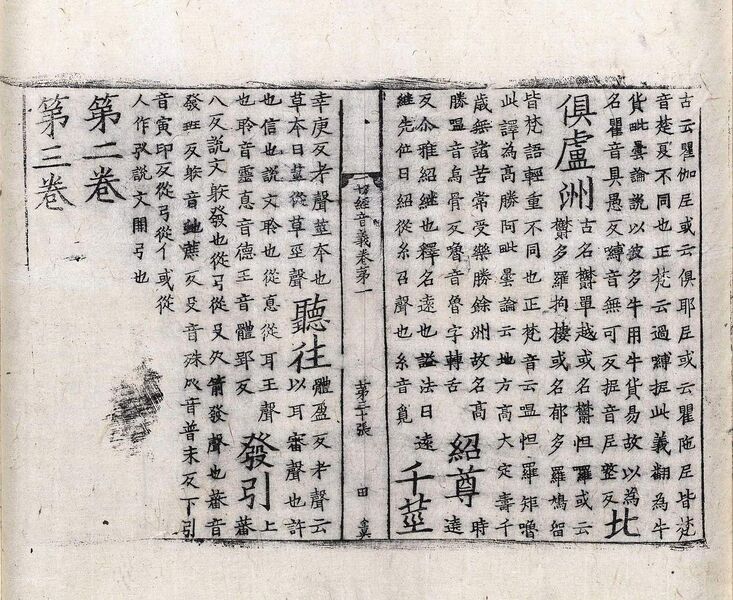 古云瞿伽尼或云俱耶尼或云瞿陁尼皆梵
音楚夏不同也正梵云過嚩抳此義翻為牛
貨毗曇論說以彼多牛用牛貨易故以為
名瞿音具愚反嚩音無可反抳音尼整反 北
俱盧洲 古名欝單越或名欝怛羅或云
欝多羅拘樓或名郁多羅鳩留
皆梵語輕重不同也正梵音云嗢怛羅矩嚕
此譯為高勝阿毗曇論云地方高大定壽千
歲無諸苦常受樂勝餘洲故名高
勝嗢音烏骨反嚕音魯字轉舌 紹尊 時
遶
反尒雅紹繼也釋名遠也謚法曰遠
継先位曰紹從糸召聲也糸音覓 千莖
切經音義卷第一 第三十張 田真
幸庚反考聲莖本也
草本曰莖從草巠聲 聽往 體盈反考聲云
以耳審聲也許
也信也說文聆也從悳從耳王聲
也聆音靈悳音德王音體郢反 發引 上
蕃
八反說文躲發也從弓從殳箭發聲也蕃音
發班反躲音虵蔗反殳音殊癶音普末反下引
音寅印反從弓從亻或從
人作說文開弓也
第二卷
第三卷